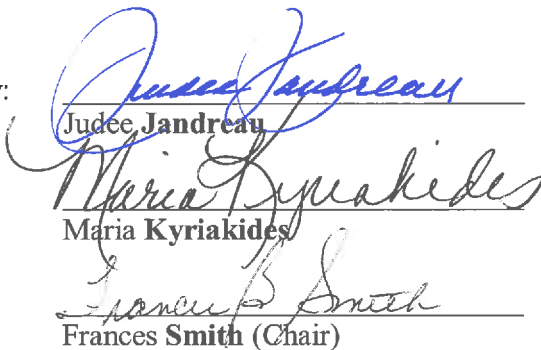 Judee Jandreau
Judee Jandreau
Maria Kyriakides
Maria Kyriakides
Frances B Smith
Frances Smith (Chair)